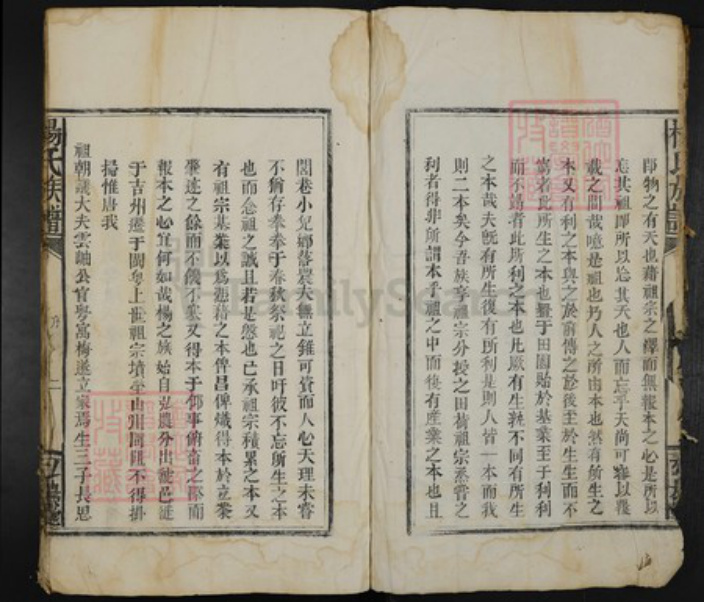 即物之有天也藉祖宗之緒而無報本之心是所以
忘其祖即所以忘其天也人而忘乎天尚可容以覆
載之間哉噫是祖也乃人之所由本也然有所生之
本又有利之本與之於前傳之於後至於生生而不
窮者此所生之本也置于田園貽於基業至于利利
而不竭者此所利之本也此厥有生雖不同有所生
之本哉夫既有所生復有所利是則人皆一本而我
則二本矣今吾族享祖宗分授之田荷祖宗烝嘗之
利者得非所謂本乎祖之中而復有產業之本也且
閭巷小兒鄉落農夫無立錐可資而人心天理未嘗
不猶存拳拳于春秋祭祀之日吁彼不忘所生之本
也而念祖之誠且若是慇也已承祖宗積累之本又
有祖宗基業以為憑藉之本俾昌俾熾得本於立業
肇迹之餘而不饑不寒又得本于仰事俯畜之際而
報本之心宜何如哉楊之族始自弘農分出
于吉州遷于閩粵上世祖宗墳塋山川間阻不得掛
掃惟唐我
祖朝議大夫雲岫公官粵寓梅遂立家焉生三子長思
楊氏族譜
序
二
楊氏族譜
FamilySe